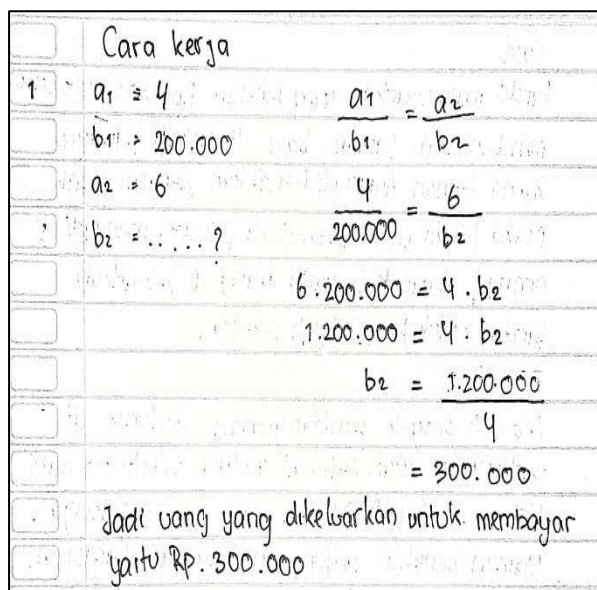 Cara kerja
1 a1 = 4
b1 = 200.000
a2 = 6
b2 = ..... ?
a1/b1 = a2/b2
4/200.000 = 6/b2
6.200.000 = 4 . b2
1.200.000 = 4 . b2
b2 = 1.200.000/4
= 300.000
Jadi uang yang dikeluarkan untuk membayar
yaitu Rp. 300.000